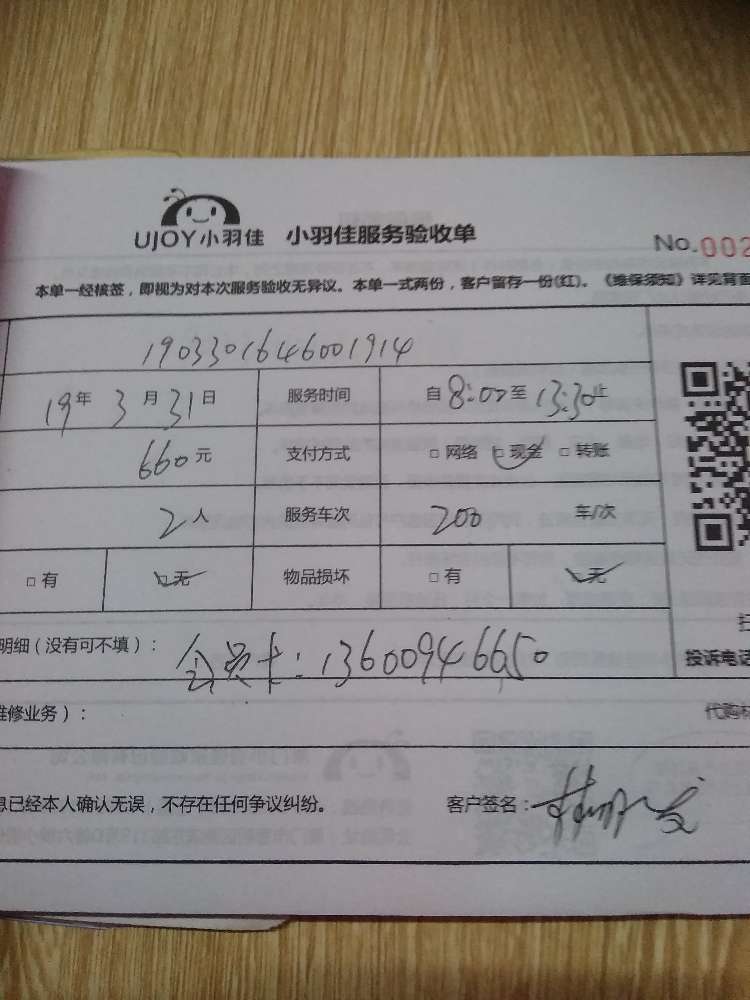 UJOY小羽佳 小羽佳服务验收单 No.002
本单一经核签，即视为对本次服务验收无异议。本单一式两份，客户留存一份(红)。《维保须知》详见背面
1903301646001914
19年 3月 31日 服务时间 自8:00至13:30止
660元 支付方式 □ 网络 □ 现金 □ 转账
2人 服务车次 200 车/次
□ 有 □ 无 物品损坏 □ 有 □ 无
明细（没有可不填）： 会员卡：13600946650
投诉电话
维修业务）： 代购材
息已经本人确认无误，不存在任何争议纠纷。 客户签名：